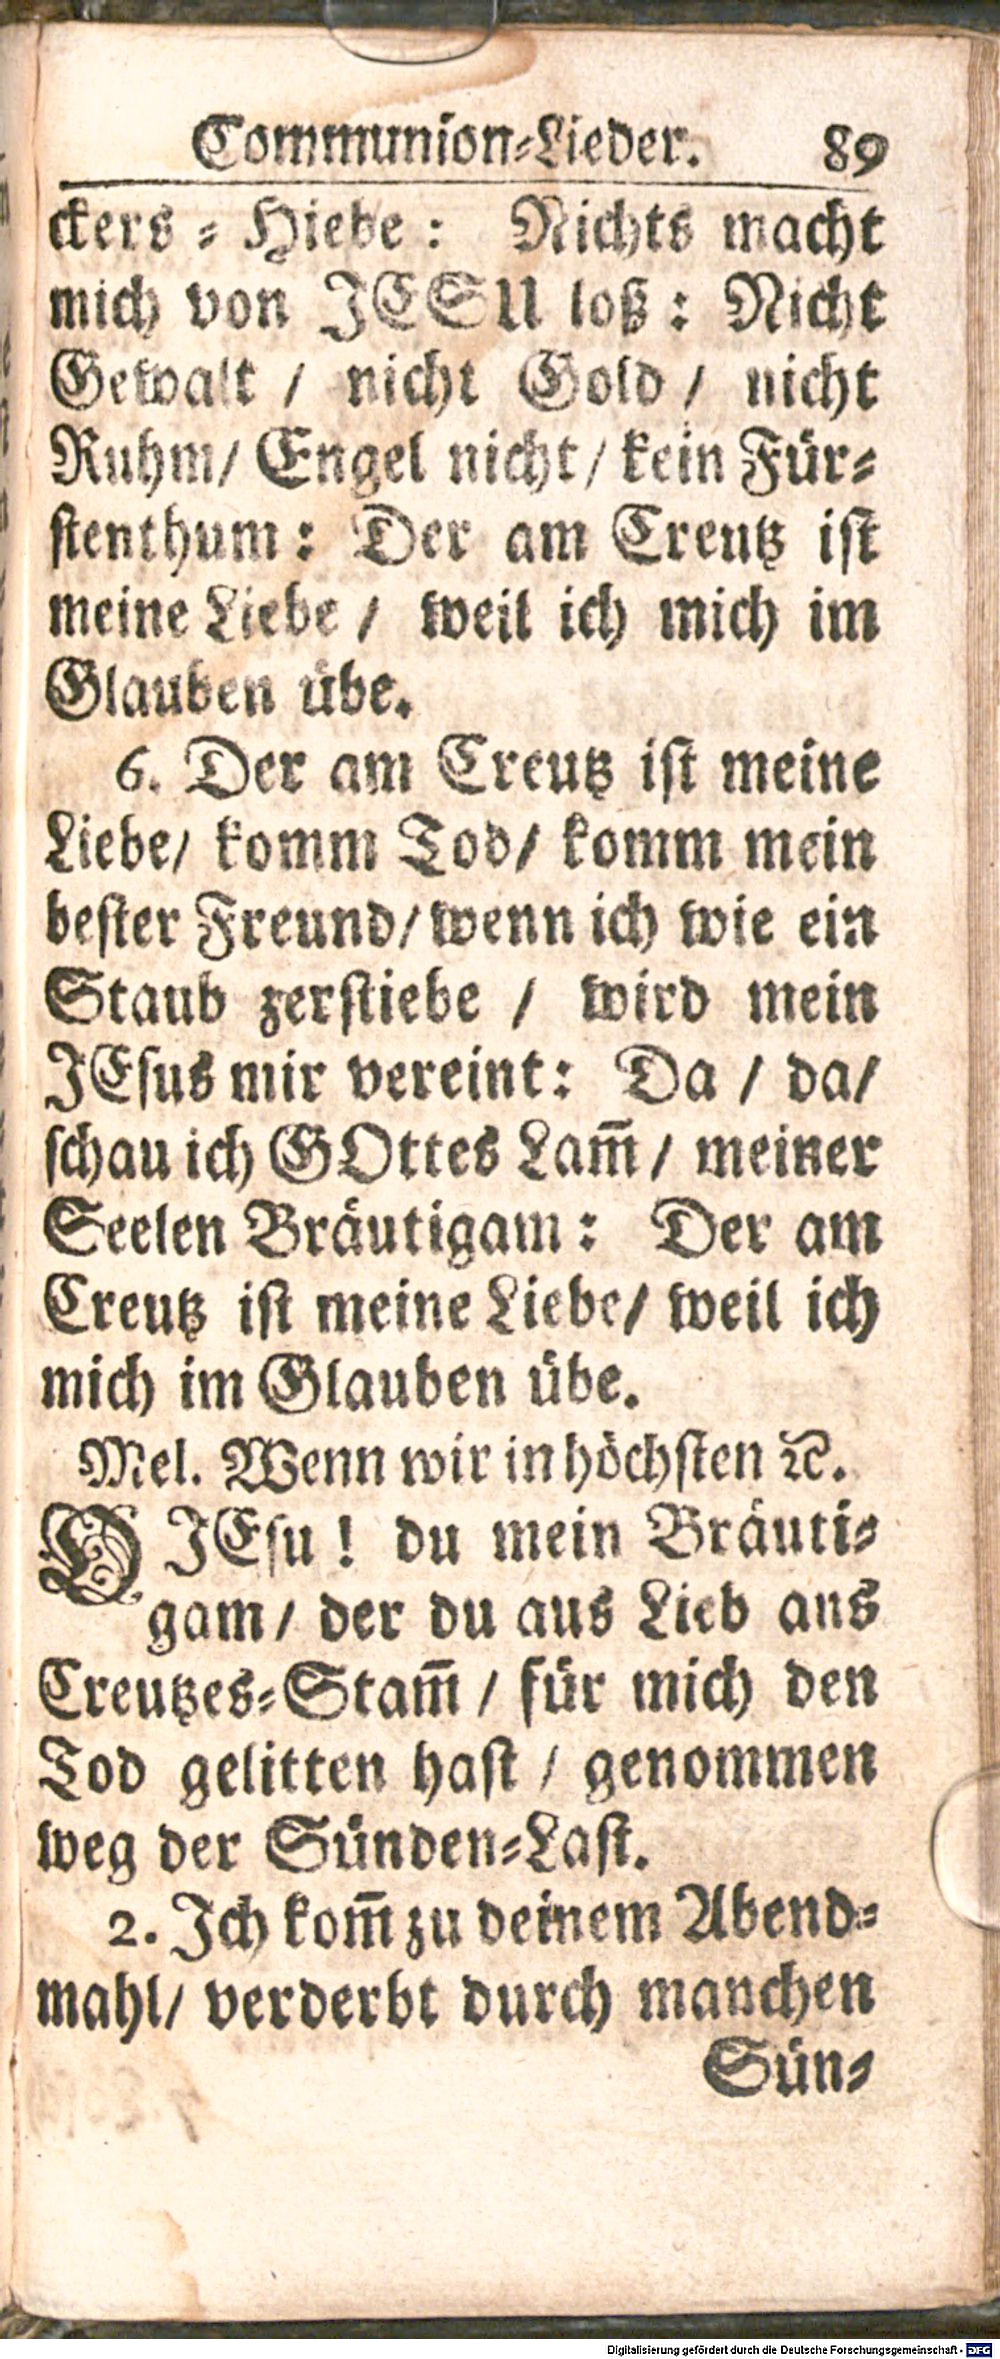 Communion-Lieder. 89
ckers-Hiebe: Nichts macht
mich von JESU loß: Nicht
Gewalt / nicht Gold / nicht
Ruhm/ Engel nicht/ kein Für-
stenthum: Der am Creutz ist
meine Liebe / weil ich mich im
Glauben übe.
6. Der am Creutz ist meine
Liebe/ komm Tod/ komm mein
bester Freund/ wenn ich wie ein
Staub zerstiebe / wird mein
JEsus mir vereint: Da / da/
schau ich GOttes Lam̃ / meiner
Seelen Bräutigam: Der am
Creutz ist meine Liebe/ weil ich
mich im Glauben übe.
Mel. Wenn wir in höchsten ꝛc.
O JEsu! du mein Bräuti-
gam/ der du aus Lieb ans
Creutzes-Stam̃ / für mich den
Tod gelitten hast / genommen
weg der Sünden-Last.
2. Ich kom̃ zu deinem Abend-
mahl/ verderbt durch manchen
Sün-
Digitalisierung gefördert durch die Deutsche Forschungsgemeinschaft - DFG